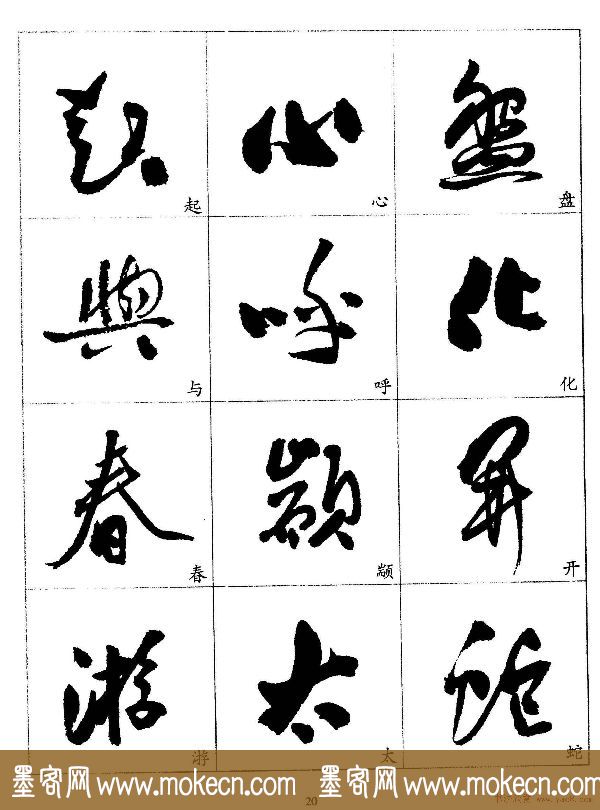 起 心 盘
起 心 盘
與 呼 化
与 呼 化
春 顓 開
春 颛 开
游 太 蛇
游 太 蛇
墨客网 www.mokecn.com 墨客网 www.mokecn.com
20